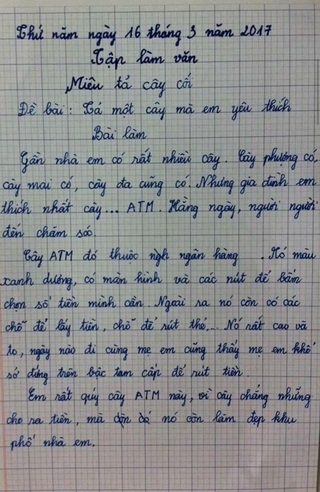 Thứ năm ngày 16 tháng 3 năm 2017
Tập làm văn
Miêu tả cây cối
Đề bài: Tả một cây mà em yêu thích
Bài làm
Gần nhà em có rất nhiều cây. Cây phượng có,
cây mai có, cây đa cũng có. Nhưng gia đình em
thích nhất cây... ATM. Hằng ngày, người người
đến chăm sóc.
Cây ATM đó thuộc ngân hàng. Nó màu
xanh dương, có màn hình và các nút để bấm
chọn số tiền mình cần. Ngoài ra nó còn có các
chỗ để lấy tiền, chỗ để rút thẻ,... Nó rất cao và
to, ngày nào đi cùng mẹ em cũng thấy mẹ em khổ
sở đứng trên bậc tam cấp để rút tiền.
Em rất quý cây ATM này, vì cây chẳng những
cho ra tiền, mà còn nó còn làm đẹp khu
phố nhà em.